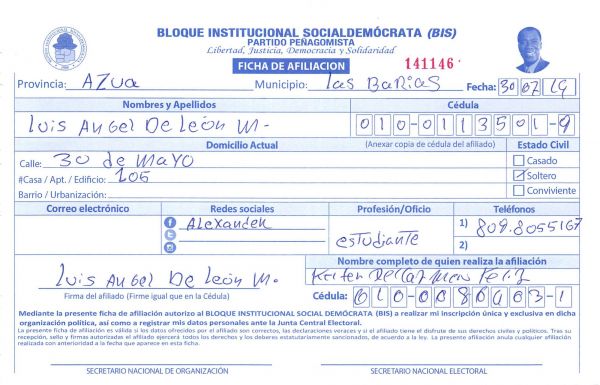 BLOQUE INSTITUCIONAL SOCIALDEMÓCRATA (BIS)
PARTIDO PEÑAGOMISTA
Libertad, Justicia, Democracia y Solidaridad
FICHA DE AFILIACION
141146
Provincia: AZua Municipio: Las Barias Fecha: 30 07 19
Nombres y Apellidos Cédula
Luis Angel De León M. 010-0113501-9
Domicilio Actual (Anexar copia de cédula del afiliado) Estado Civil
Calle: 30 de Mayo Casado
#Casa / Apt. / Edificio: 106 Soltero
Barrio / Urbanización: Conviviente
Correo electrónico Redes sociales Profesión/Oficio Teléfonos
Alexander estudiante 1) 809.8055167
2)
Nombre completo de quien realiza la afiliación
Luis Angel De León M.
Firma del afiliado (Firme igual que en la Cédula) Cédula:
Mediante la presente ficha de afiliación autorizo al BLOQUE INSTITUCIONAL SOCIAL DEMÓCRATA (BIS) a realizar mi inscripción única y exclusiva en dicha
organización política, así como a registrar mis datos personales ante la Junta Central Electoral.
La presente ficha de afiliación es válida si los datos ofrecidos por el afiliado son correctos, las declaraciones veraces y si el afiliado tiene el disfrute de sus derechos civiles y políticos. Tras su
recepción, sello y firmas autorizadas el afiliado ejercerá todos los derechos y los deberes estatutariamente sancionados, de acuerdo a la ley. La presente afiliación anula cualquier afiliación
realizada con anterioridad a la fecha que aparece en esta ficha.
SECRETARIO NACIONAL DE ORGANIZACIÓN SECRETARIO NACIONAL ELECTORAL